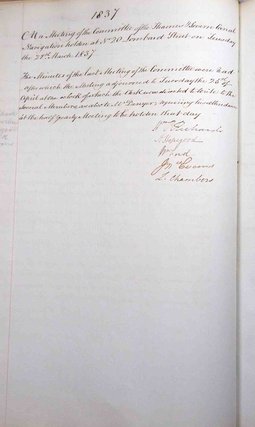 1837
At a Meeting of the Committee of the Thames & Severn Canal
Navigation holden at No 20 Lombard Street on Tuesday
the 21st March 1837
The Minutes of the last Meeting of the Committee were read
after which the Meeting adjourned to Tuesday the 25th of
April at one o'clock of which the Clerk was desired to write to the
several Members, as also to Mr Danger requiring his attendance
at the half yearly Meeting to be holden that day
J. Chambers